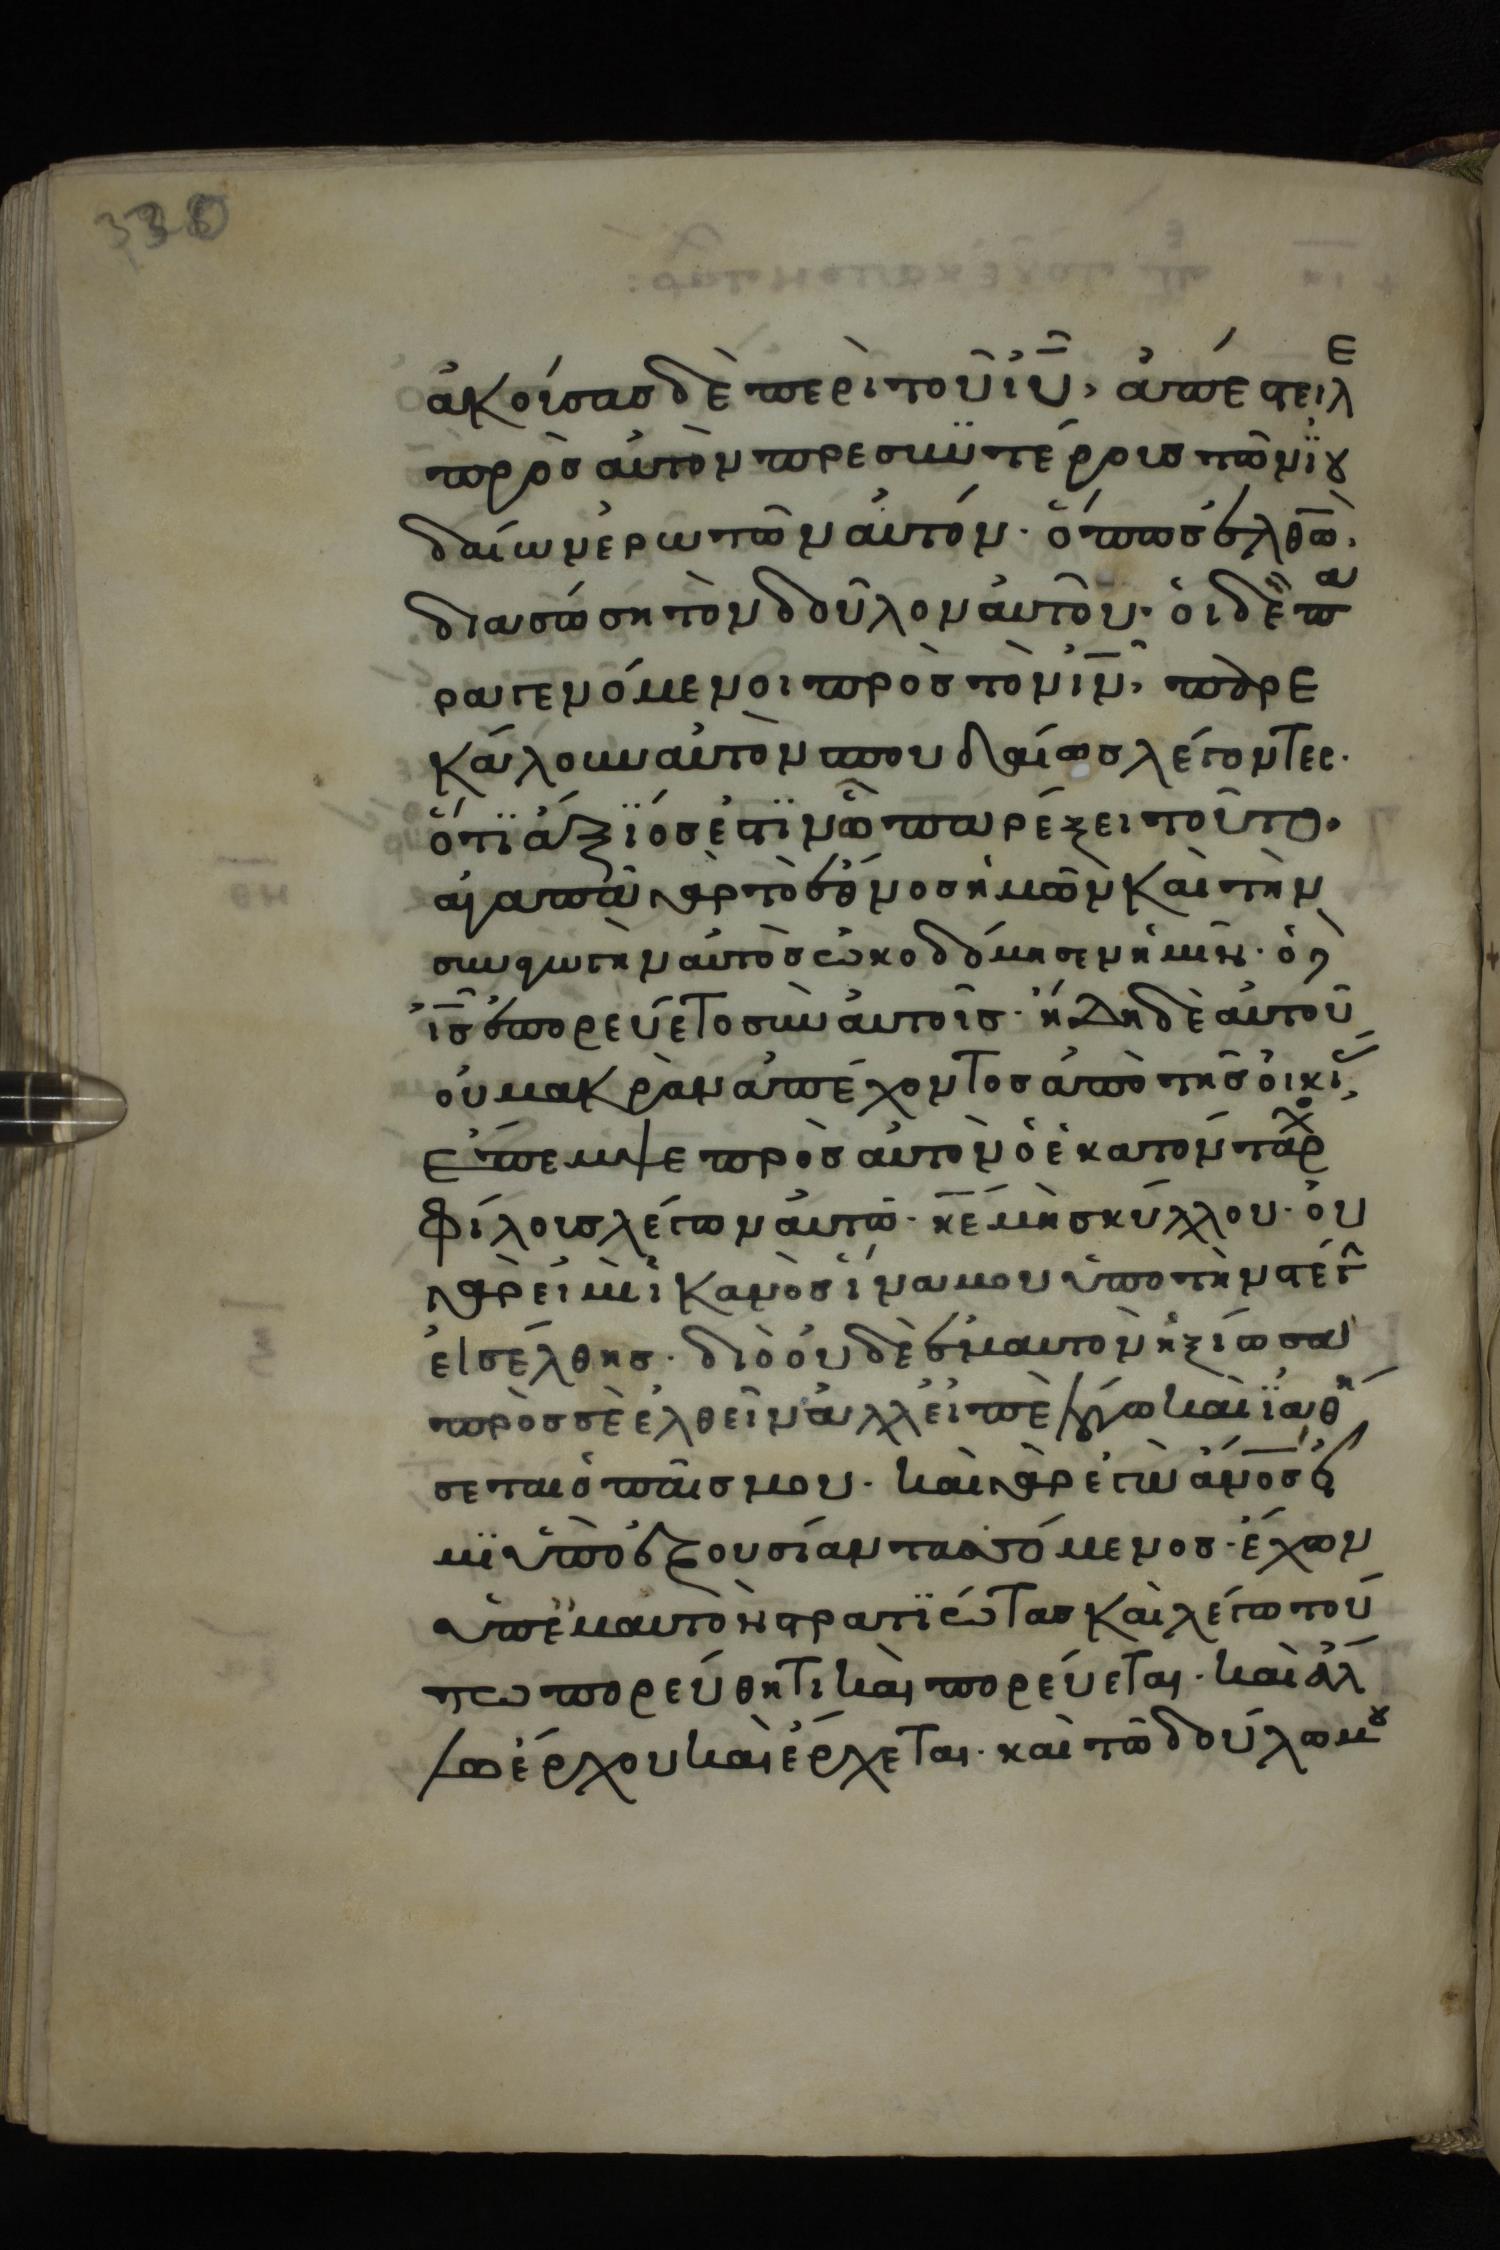 330
ἀκούσας δὲ περὶ τοῦ ιῦ, ἀπέστειλε
πρὸς αὐτὸν πρεσβυτέρους τῶν ϊου
δαίων ἐρωτῶν αὐτόν· ὅπως ἐλθὼ,
διασώση τὸν δοῦλον αὐτοῦ· οἱ δὲ πα
ραγενόμενοι πρὸς τὸν ιν, παρε
κάλουν αὐτὸν σπουδαίως λέγοντες·
ὅτϊ ἄξϊός ἐστϊν ὧ παρέξει τοῦτο·
ἀγαπᾶ γὰρ τὸ ἔθνος ἡμῶν καὶ τὴν
συναγωγὴν αὐτὸς ὠκοδόμησεν ἡμῖν· ὁ δὲ
ις ἐπορεύετο σὺν αὐτοῖς· ἤδη δὲ αὐτοῦ
οὐ μακρὰν ἀπέχοντος ἀπὸ τῆς οἰκί,
ἔπεμψε πρὸς αὐτὸν ὁ ἑκατόνταρχο
φίλους λέγων αὐτῶ· κε μὴ σκύλλου· οὐ
γὰρ εἰμὶ ἱκανὸς ἵνα μου ὑπὸ τὴν στέγ
εἰσέλθης· διὸ οὐδὲ ἐμαυτὸν ἠξίωσα
πρὸς σὲ ἐλθεῖν ἀλλ εἰπὲ λόγω καὶ ϊαθή
σεται ὁ παῖς μου· καὶ γὰρ ἐγὼ ἄνος εἰ
μϊ ὑπὸ ἐξουσίαν τασσόμενος· ἔχων
ὑπ ἐμαυτὸν στρατϊώτας καὶ λέγω τού
τω πορεύθητι καὶ πορεύεται· καὶ ἄλ
λω ἔρχου καὶ ἔρχεται· καὶ τῶ δούλω μου